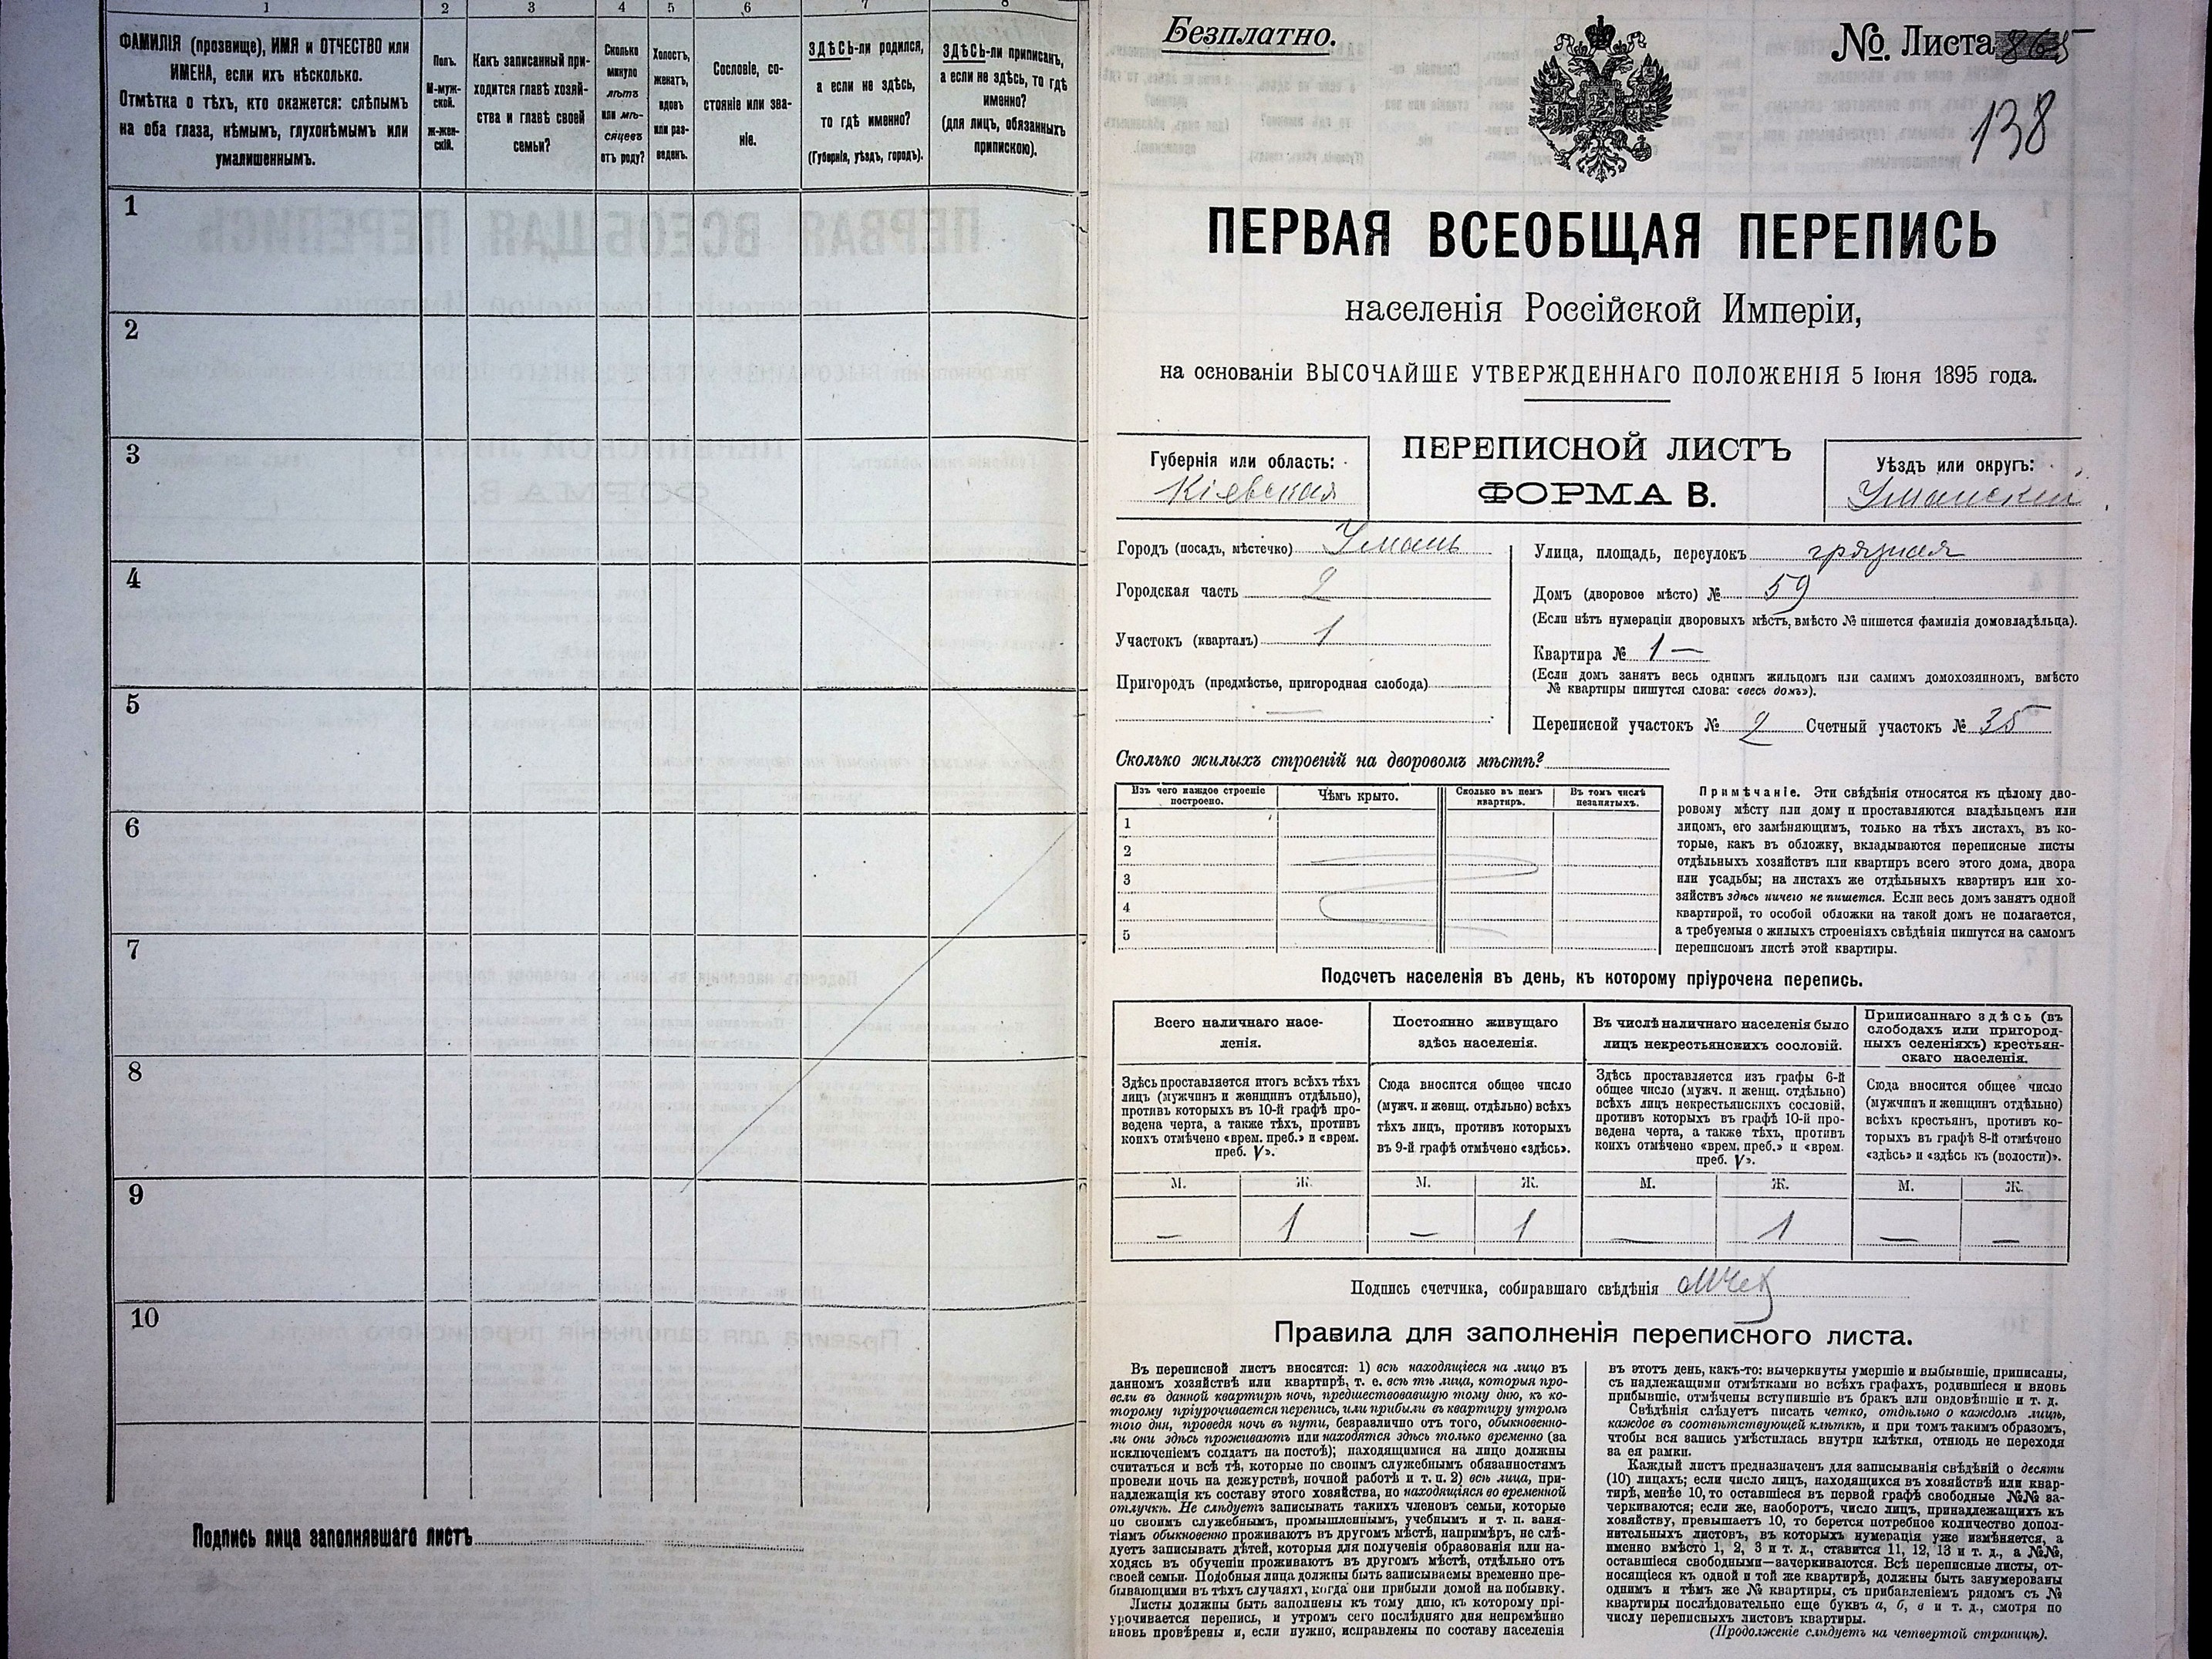 1 2 3 4 5 6 7 8
ФАМИЛІЯ (прозвище), ИМЯ и ОТЧЕСТВО или
ИМЕНА, если ихъ нѣсколько.
Отмѣтка о тѣхъ, кто окажется: слѣпымъ
на оба глаза, нѣмымъ, глухонѣмымъ или
умалишеннымъ.
Полъ.
М-муж-
ской.
ж-жен-
скій.
Какъ записанный при-
ходится главѣ хозяй-
ства и главѣ своей
семьи?
Сколько
минуло
лѣтъ
или мѣ-
сяцевъ
отъ роду?
Холостъ,
женатъ,
вдовъ
или раз-
веденъ.
Сословіе, со-
стояніе или зва-
ніе.
ЗДѢСЬ-ли родился,
а если не здѣсь,
то гдѣ именно?
(Губернія, уѣздъ, городъ).
ЗДѢСЬ-ли приписанъ,
а если не здѣсь, то гдѣ
именно?
(для лицъ, обязанныхъ
припискою).
1
2
3
4
5
6
7
8
9
10
Подпись лица заполнявшаго листъ
Безплатно.
№ Листа 865
138
ПЕРВАЯ ВСЕОБЩАЯ ПЕРЕПИСЬ
населенія Россійской Имперіи,
на основаніи ВЫСОЧАЙШЕ УТВЕРЖДЕННАГО ПОЛОЖЕНІЯ 5 Іюня 1895 года.
Губернія или область:
Кіевская
ПЕРЕПИСНОЙ ЛИСТЪ
ФОРМА В.
Уѣздъ или округъ:
Уманскій
Городъ (посадъ, мѣстечко) Умань
Городская часть 2
Участокъ (кварталъ) 1
Пригородъ (предмѣстье, пригородная слобода)
—
Улица, площадь, переулокъ грязная
Домъ (дворовое мѣсто) № 59
(Если нѣтъ нумераціи дворовыхъ мѣстъ, вмѣсто № пишется фамилія домовладѣльца).
Квартира № 1 —
(Если домъ занятъ весь однимъ жильцомъ или самимъ домохозяиномъ, вмѣсто
№ квартиры пишутся слова: «весь домъ»).
Переписной участокъ № 2 Счетный участокъ № 35
Сколько жилыхъ строеній на дворовомъ мѣстѣ?
Изъ чего каждое строеніе
построено.
Чѣмъ крыто.
Сколько въ немъ
квартиръ.
Въ томъ числѣ
незанятыхъ.
1
2
3
4
5
Примѣчаніе. Эти свѣдѣнія относятся къ цѣлому дво-
ровому мѣсту или дому и проставляются владѣльцемъ или
лицомъ, его замѣняющимъ, только на тѣхъ листахъ, въ ко-
торые, какъ въ обложку, вкладываются переписные листы
отдѣльныхъ хозяйствъ или квартиръ всего этого дома, двора
или усадьбы; на листахъ же отдѣльныхъ квартиръ или хо-
зяйствъ здѣсь ничего не пишется. Если весь домъ занятъ одной
квартирой, то особой обложки на такой домъ не полагается,
а требуемыя о жилыхъ строеніяхъ свѣдѣнія пишутся на самомъ
переписномъ листѣ этой квартиры.
Подсчетъ населенія въ день, къ которому пріурочена перепись.
Всего наличнаго насе-
ленія.
Постоянно живущаго
здѣсь населенія.
Въ числѣ наличнаго населенія было
лицъ некрестьянскихъ сословій.
Приписаннаго здѣсь (въ
слободахъ или пригород-
ныхъ селеніяхъ) крестьян-
скаго населенія.
Здѣсь проставляется итогъ всѣхъ тѣхъ
лицъ (мужчинъ и женщинъ отдѣльно),
противъ которыхъ въ 10-й графѣ про-
ведена черта, а также тѣхъ, противъ
коихъ отмѣчено «врем. преб.» и «врем.
преб. V».
Сюда вносится общее число
(мужч. и женщ. отдѣльно) всѣхъ
тѣхъ лицъ, противъ которыхъ
въ 9-й графѣ отмѣчено «здѣсь».
Здѣсь проставляется изъ графы 6-й
общее число (мужч. и женщ. отдѣльно)
всѣхъ лицъ некрестьянскихъ сословій,
противъ которыхъ въ графѣ 10-й про-
ведена черта, а также тѣхъ, противъ
коихъ отмѣчено «врем. преб.» и «врем.
преб. V».
Сюда вносится общее число
(мужчинъ и женщинъ отдѣльно)
всѣхъ крестьянъ, противъ ко-
торыхъ въ графѣ 8-й отмѣчено
«здѣсь» и «здѣсь къ (волости)».
М. Ж. М. Ж. М. Ж. М. Ж.
— 1 — 1 — 1 — —
Подпись счетчика, собиравшаго свѣдѣнія
Правила для заполненія переписного листа.
Въ переписной листъ вносятся: 1) всѣ находящіеся на лицо въ
данномъ хозяйствѣ или квартирѣ, т. е. всѣ тѣ лица, которыя про-
вели въ данной квартирѣ ночь, предшествовавшую тому дню, къ ко-
торому пріурочивается перепись, или прибыли въ квартиру утромъ
того дня, проведя ночь въ пути, безразлично отъ того, обыкновенно-
ли они здѣсь проживаютъ или находятся здѣсь только временно (за
исключеніемъ солдатъ на постоѣ); находящимися на лицо должны
считаться и всѣ тѣ, которые по своимъ служебнымъ обязанностямъ
провели ночь на дежурствѣ, ночной работѣ и т. п. 2) всѣ лица, при-
надлежащія къ составу этого хозяйства, но находящіяся во временной
отлучкѣ. Не слѣдуетъ записывать такихъ членовъ семьи, которые
по своимъ служебнымъ, промышленнымъ, учебнымъ и т. п. заня-
тіямъ обыкновенно проживаютъ въ другомъ мѣстѣ, напримѣръ, не слѣ-
дуетъ записывать дѣтей, которыя для полученія образованія или на-
ходясь въ обученіи проживаютъ въ другомъ мѣстѣ, отдѣльно отъ
своей семьи. Подобныя лица должны быть записываемы временно пре-
бывающими въ тѣхъ случаяхъ, когда они прибыли домой на побывку.
Листы должны быть заполнены къ тому дню, къ которому прі-
урочивается перепись, и утромъ сего послѣдняго дня непремѣнно
вновь провѣрены и, если нужно, исправлены по составу населенія
въ этотъ день, какъ-то: вычеркнуты умершіе и выбывшіе, приписаны,
съ надлежащими отмѣтками во всѣхъ графахъ, родившіеся и вновь
прибывшіе, отмѣчены вступившіе въ бракъ или овдовѣвшіе и т. д.
Свѣдѣнія слѣдуетъ писать четко, отдѣльно о каждомъ лицѣ,
каждое въ соотвѣтствующей клѣткѣ, и при томъ такимъ образомъ,
чтобы вся запись умѣстилась внутри клѣтки, отнюдь не переходя
за ея рамки.
Каждый листъ предназначенъ для записыванія свѣдѣній о десяти
(10) лицахъ; если число лицъ, находящихся въ хозяйствѣ или квар-
тирѣ, менѣе 10, то оставшіеся въ первой графѣ свободные №№ за-
черкиваются; если же, наоборотъ, число лицъ, принадлежащихъ къ
хозяйству, превышаетъ 10, то берется потребное количество допол-
нительныхъ листовъ, въ которыхъ нумерація уже измѣняется, а
именно вмѣсто 1, 2, 3 и т. д., ставится 11, 12, 13 и т. д., а №№,
оставшіеся свободными—зачеркиваются. Всѣ переписные листы, от-
носящіеся къ одной и той же квартирѣ, должны быть занумерованы
однимъ и тѣмъ же № квартиры, съ прибавленіемъ рядомъ съ №
квартиры послѣдовательно еще буквъ а, б, в и т. д., смотря по
числу переписныхъ листовъ квартиры.
(Продолженіе слѣдуетъ на четвертой страницѣ).